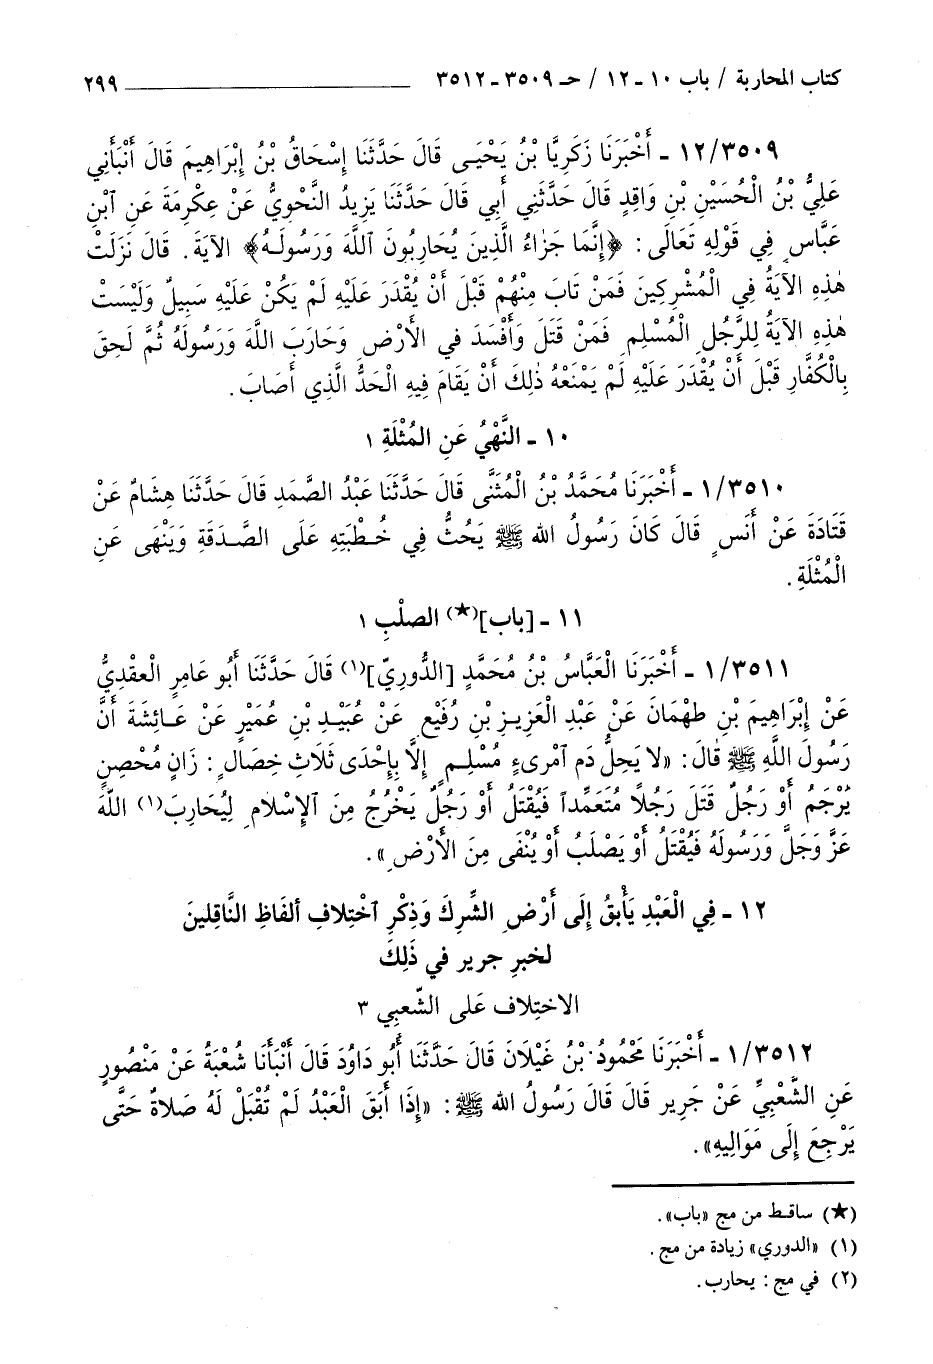 كتاب المحاربة / باب ١٠ ـ ١٢ / حـ ٣٥٠٩ ـ ٣٥١٢ ٢٩٩
١٢/٣٥٠٩ ـ أَخْبَرَنَا زَكَرِيَّا بْنُ يَحْيَى قَالَ حَدَّثَنَا إِسْحَاقُ بْنُ إِبْرَاهِيمَ قَالَ أَنْبَأَنِي
عَلِيُّ بْنُ الْحُسَيْنِ بْنِ وَاقِدٍ قَالَ حَدَّثَنِي أَبِي قَالَ حَدَّثَنَا يَزِيدُ النَّحْوِيُّ عَنْ عِكْرِمَةَ عَنِ ٱبْنِ
عَبَّاسٍ فِي قَوْلِهِ تَعَالَى : ﴿إِنَّمَا جَزَاءُ الَّذِينَ يُحَارِبُونَ ٱللَّهَ وَرَسُولَهُ﴾ الآيَةَ. قَالَ نَزَلَتْ
هٰذِهِ الآيَةُ فِي الْمُشْرِكِينَ فَمَنْ تَابَ مِنْهُمْ قَبْلَ أَنْ يُقْدَرَ عَلَيْهِ لَمْ يَكُنْ عَلَيْهِ سَبِيلٌ وَلَيْسَتْ
هٰذِهِ الآيَةُ لِلرَّجُلِ الْمُسْلِمِ فَمَنْ قَتَلَ وَأَفْسَدَ في الأَرْضِ وَحَارَبَ اللَّهَ وَرَسُولَهُ ثُمَّ لَحِقَ
بِالْكُفَّارِ قَبْلَ أَنْ يُقْدَرَ عَلَيْهِ لَمْ يَمْنَعْهُ ذٰلِكَ أَنْ يَقَامَ فِيهِ الْحَدُّ الَّذِي أَصَابَ.
١٠ ـ النَّهْيُ عَنِ المُثْلَةِ ١
١/٣٥١٠ ـ أَخْبَرَنَا مُحَمَّدُ بْنُ الْمُثَنَّى قَالَ حَدَّثَنَا عَبْدُ الصَّمَدِ قَالَ حَدَّثَنَا هِشَامٌ عَنْ
قَتَادَةَ عَنْ أَنَسٍ قَالَ كَانَ رَسُولُ الله ﷺ يَحُثُّ فِي خُطْبَتِهِ عَلَى الصَّدَقَةِ وَيَنْهَى عَنِ
الْمُثْلَةِ.
١١ ـ [باب](★) الصلْبِ ١
١/٣٥١١ ـ أَخْبَرَنَا الْعَبَّاسُ بْنُ مُحَمَّدٍ [الدُّورِيّ](١) قَالَ حَدَّثَنَا أَبُو عَامِرٍ الْعَقْدِيُّ
عَنْ إِبْرَاهِيمَ بْنِ طَهْمَانَ عَنْ عَبْدِ الْعَزِيزِ بْنِ رُفَيْعٍ عَنْ عُبَيْدِ بْنِ عُمَيْرٍ عَنْ عَائِشَةَ أَنَّ
رَسُولَ اللَّهِ ﷺ قَالَ: «لا يَحِلُّ دَم ٱمْرىءٍ مُسْلِمٍ إِلَّا بِإِحْدَى ثَلَاثِ خِصَالٍ: زَانٍ مُحْصِنٍ
يُرْجَمُ أَوْ رَجُلٌ قَتَلَ رَجُلاً مُتَعَمِّداً فَيُقْتَلُ أَوْ رَجُلٌ يَخْرُجُ مِنَ ٱلإِسْلَامِ لِيُحَارِبَ(١) اللَّهَ
عَزَّ وَجَلَّ وَرَسُولَهُ فَيُقْتَلُ أَوْ يَصْلَبُ أَوْ يُنْفَى مِنَ الأَرْضِ».
١٢ ـ فِي الْعَبْدِ يَأْبقُ إِلَى أَرْضِ الشِّرِكَ وَذِكْرِ ٱخْتِلافِ ألفَاظِ النَّاقِلينَ
لخبرِ جرير في ذَلِكَ
الاختِلاف عَلى الشّعبِي ٣
١/٣٥١٢ ـ أَخْبَرَنَا مَحْمُودُ بْنُ غَيْلَانَ قَالَ حَدَّثَنَا أَبُو دَاوُدَ قَالَ أَنْبَأَنَا شُعْبَةُ عَنْ مَنْصُورٍ
عَنِ الشَّعْبِيِّ عَنْ جَرِيرٍ قَالَ قَالَ رَسُولُ الله ﷺ: «إِذَا أَبَقَ الْعَبْدُ لَمْ تُقْبَلْ لَهُ صَلَاةٌ حَتَّى
يَرْجِعَ إِلَى مَوَالِيهِ».
(★) ساقط من مج «باب».
(١) «الدوري» زيادة من مج.
(٢) في مج : يحارب.